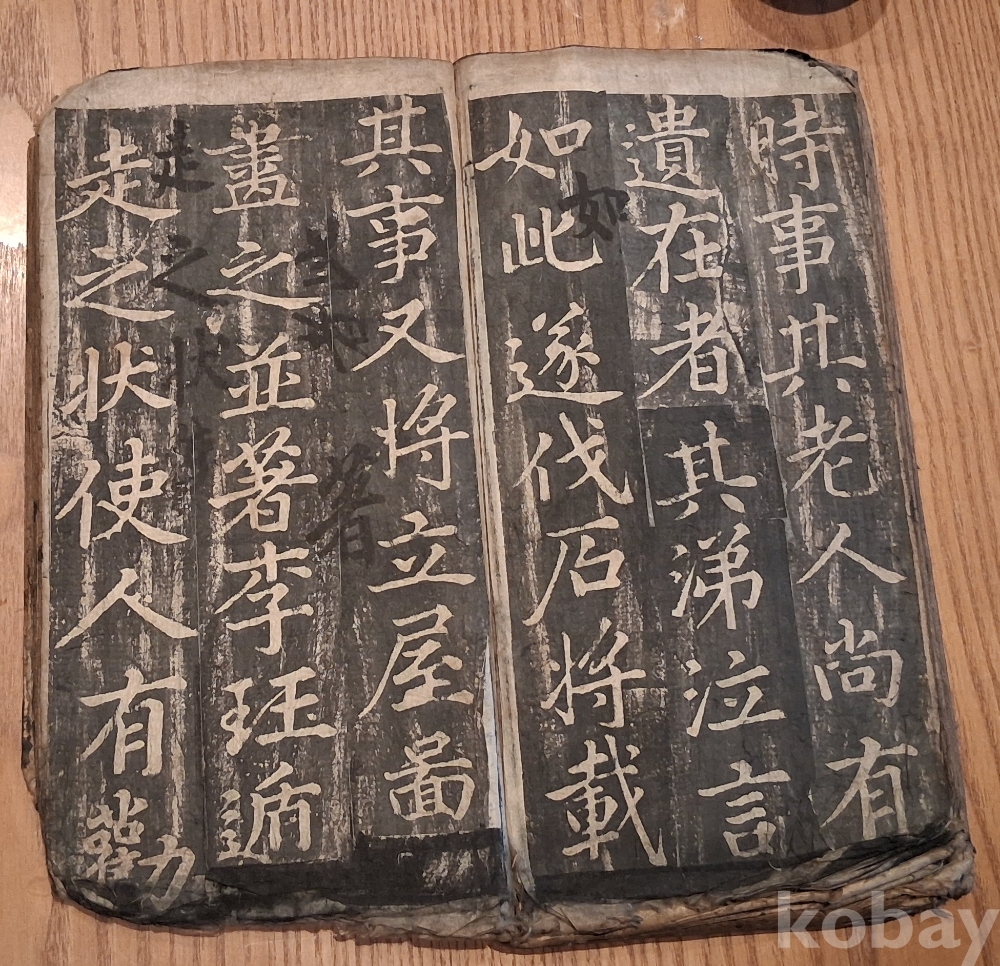 時事其老人尚有
遺在者其涕泣言
如
如此遂伐石将載
其事又将立屋啚
著
畫之並著李珏遁
走之状
走之状使人有勸
kobay